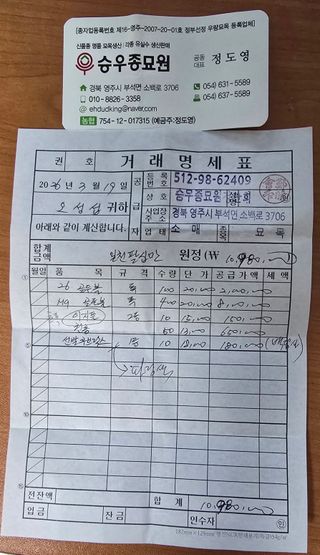 [종자업등록번호 제16-영주-2007-20-01호 정부선정 우량묘목 등록업체]
신품종 명품 묘목생산 / 각종 유실수 생산판매
승우종묘원
공동대표 정도영
경북 영주시 부석면 소백로 3706
010-8826-3358
ehdudking@naver.com
농협 754-12-017315 (예금주:정도영)
054) 631-5589
054) 637-5589
권 호
거래명세표
2026년 3월 19일
귀하
아래와 같이 계산합니다.
공급자
등록번호 512-98-62409
상호 승우종묘원
사업장주소 경북 영주시 부석면 소백로 3706
업태 소매 종목 묘목
합계금액
원정(₩ 10,980,000)
월일 품목 규격 수량 단가 공급가액 세액
특 100 20,000 2,000,000
특 400 20,000 8,000,000
10 15,000 150,000
50 13,000 650,000
10 18,000 180,000
전잔액
합계 10,980,000
입금 잔금 인수자 인